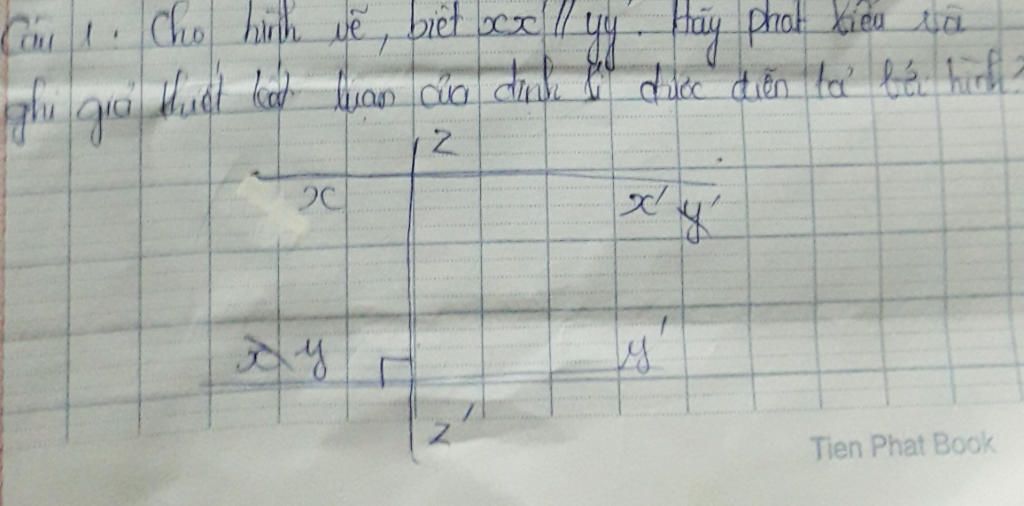 Câu 1. Cho hình vẽ, biết xx' // yy'. Hãy phát biểu và
ghi giả thuết kết luan của định lí được diễn tả bởi hình?
z
x x' y'
x y y'
z'
Tien Phat Book